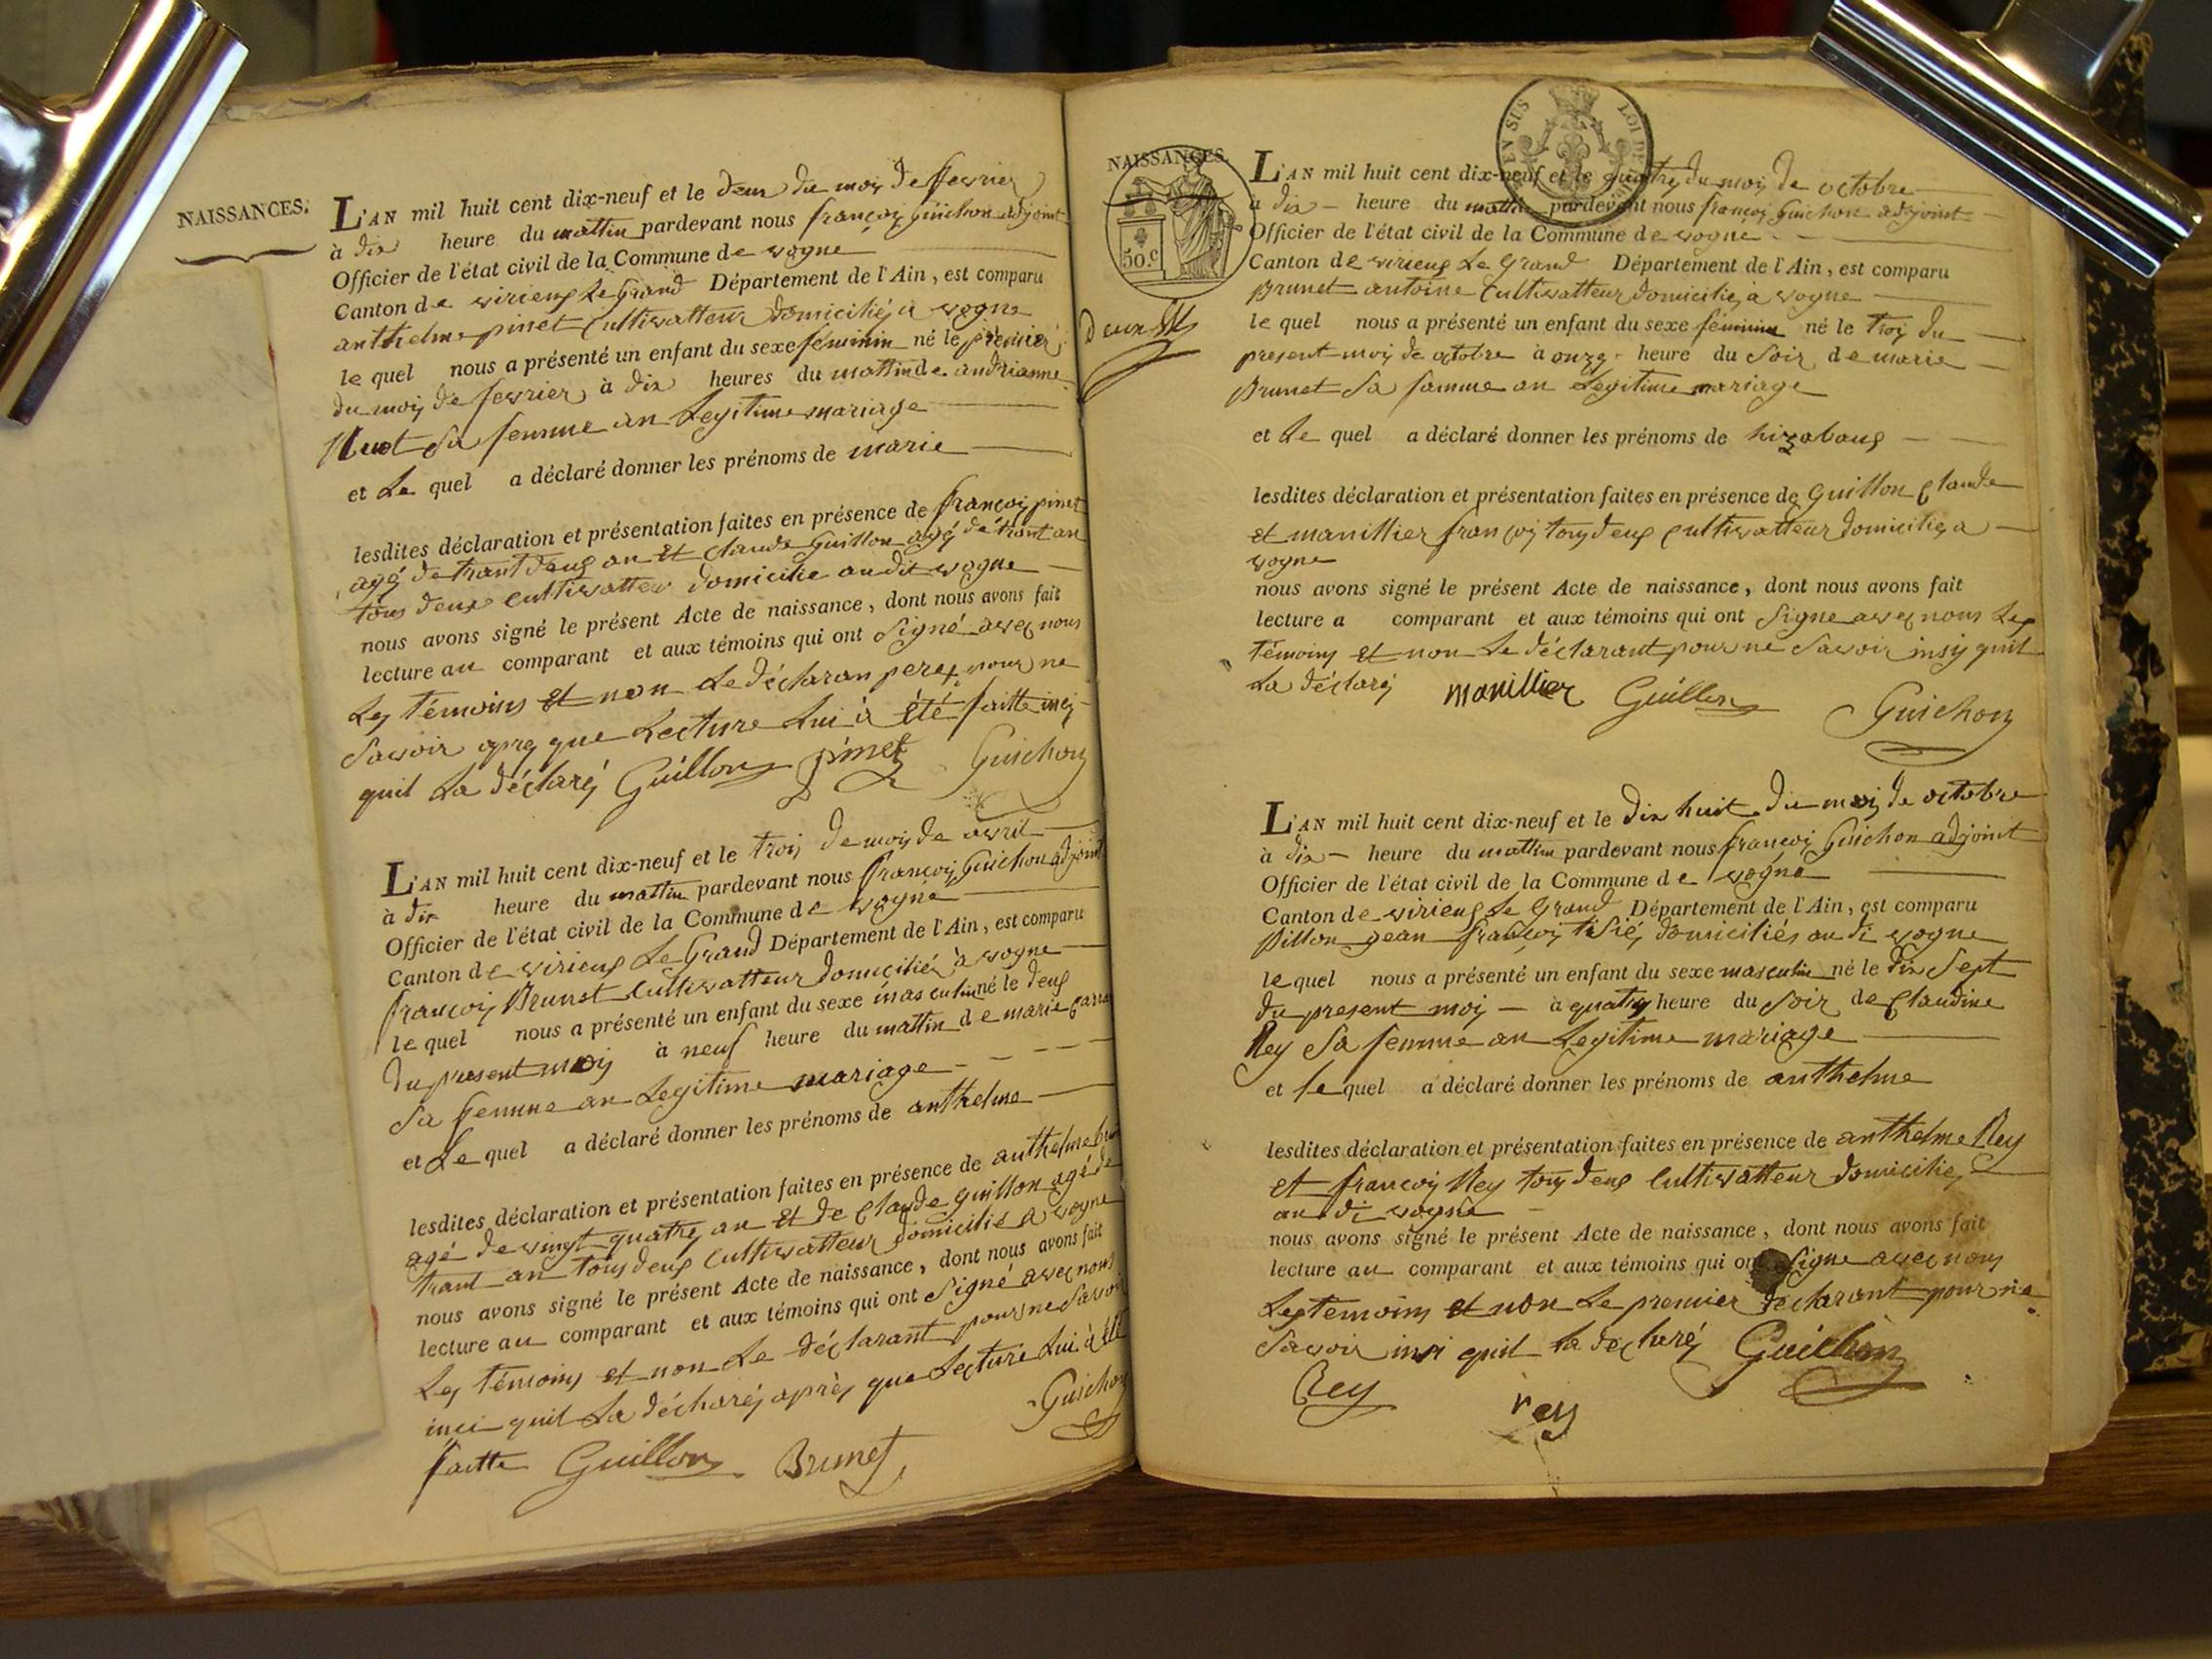 NAISSANCES.
L'AN mil huit cent dix-neuf et le deux du mois de fevrier
à dix heure du mattin pardevant nous françois Guichon adjoint
Officier de l'état civil de la Commune de vogne
Canton de virieux Le Grand Département de l'Ain, est comparu
anthelme pinet Cultivatteur domicilié a vogne
le quel nous a présenté un enfant du sexe féminin né le premier
du mois de fevrier à dix heures du mattin de andrianne
Huot sa femme an Legitime mariage
et Le quel a déclaré donner les prénoms de marie
lesdites déclaration et présentation faites en présence de françois pinet
agé de trant deux an et claude Guillon agé de trant an
tous deux cultivatteur domicilie audit vogne
nous avons signé le présent Acte de naissance, dont nous avons fait
lecture au comparant et aux témoins qui ont Signé avec nous
Les témoins et non Le déclaran pere pour ne
Savoir apres que Lecture Lui à été faitte
quil La déclaré Guillon pinet Guichon
L'AN mil huit cent dix-neuf et le trois de mois de avril
à dix heure du mattin pardevant nous françois Guichon adjoint
Officier de l'état civil de la Commune de vogne
Canton de virieux Le Grand Département de l'Ain, est comparu
françois Brunet Cultivatteur domicilié à vogne
le quel nous a présenté un enfant du sexe masculin né le deux
du present mois à neuf heure du mattin de marie
Sa femme an Legitime mariage
et Le quel a déclaré donner les prénoms de anthelme
lesdites déclaration et présentation faites en présence de anthelme
agé de vingt quatre an et de Claude Guillon agé de
trant an tous deux Cultivatteur domicilié a vogne
nous avons signé le présent Acte de naissance, dont nous avons fait
lecture au comparant et aux témoins qui ont Signé avec nous
Les témoins et non Le déclarant pour ne Savoir
inci quil La déclaré après que Lecture Lui à été
faitte Guillon Brunet Guichon
NAISSANCES.
EN SUS LOI DE
50.c
L'AN mil huit cent dix-neuf et le quatre du mois de octobre
a dix heure du mattin pardevant nous françois Guichon adjoint
Officier de l'état civil de la Commune de vogne
Canton de virieux Le Grand Département de l'Ain, est comparu
Brunet antoine Cultivatteur domicilié a vogne
le quel nous a présenté un enfant du sexe féminin né le trois du
present mois de octobre à onze heure du Soir de marie
Brunet Sa famme an Legitime mariage
et Le quel a déclaré donner les prénoms de hizabaux
lesdites déclaration et présentation faites en présence de Guillon Claude
et manillier françois tous deux Cultivatteur domicilie a
vogne
nous avons signé le présent Acte de naissance, dont nous avons fait
lecture a comparant et aux témoins qui ont Signe avec nous Les
témoins et non Le déclarant pour ne Savoir insi quil
La déclaré manillier Guillon Guichon
L'AN mil huit cent dix-neuf et le dix huit du mois de octobre
à dix heure du mattin pardevant nous françois Guichon adjoint
Officier de l'état civil de la Commune de vogne
Canton de virieux Le Grand Département de l'Ain, est comparu
Pillon jean françois domiciliés au di vogne
le quel nous a présenté un enfant du sexe masculin né le dix Sept
du present mois à quatre heure du Soir de Claudine
Rey Sa femme an Legitime mariage
et le quel a déclaré donner les prénoms de anthelme
lesdites déclaration et présentation faites en présence de anthelme Rey
et françois Rey tous deux Cultivatteur domicilie
au di vogne
nous avons signé le présent Acte de naissance, dont nous avons fait
lecture au comparant et aux témoins qui ont Signe avec nous
Les temoins et non Le premier declarant pour ne
Savoir insi quil la declaré Guichon
Rey rey